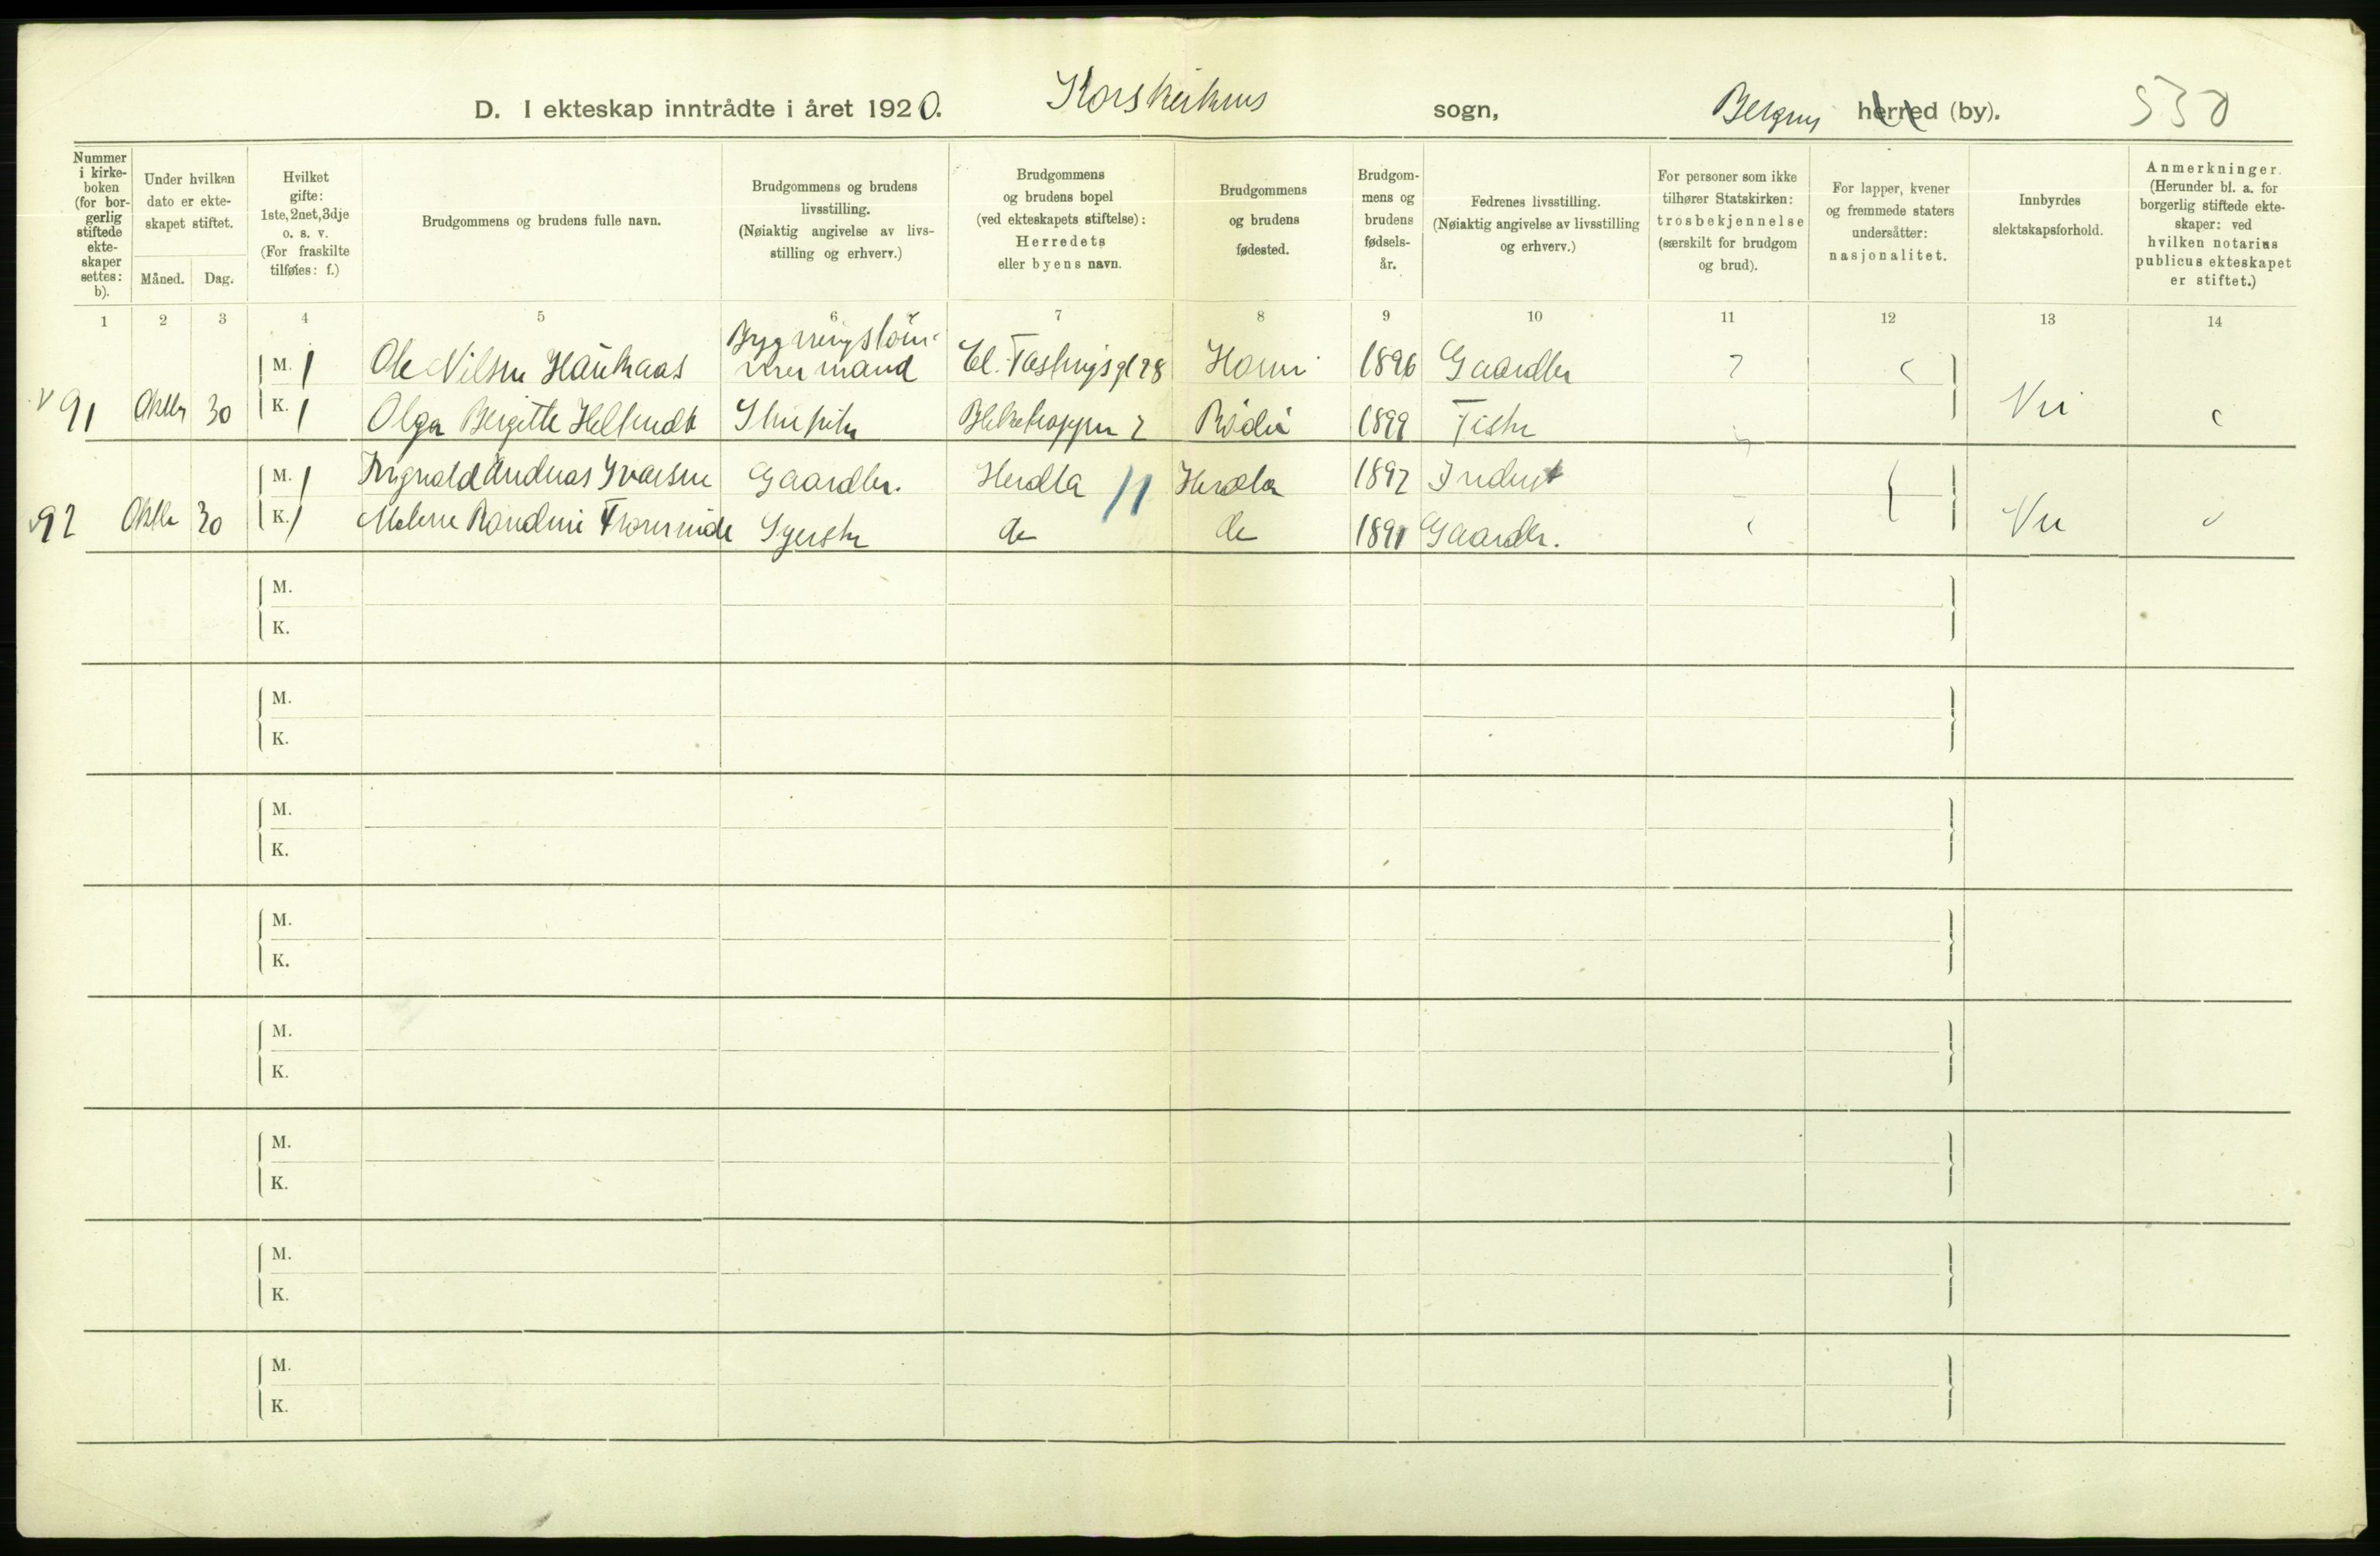 D. I ekteskap inntrådte i året 1920. Korskirkens sogn, Bergens herred (by). 530
Nummer i kirkeboken (for borgerlig stiftede ekteskaper settes: b).
Under hvilken dato er ekteskapet stiftet.
Måned. Dag.
Hvilket gifte: 1ste, 2net, 3dje o. s. v. (For fraskilte tilføies: f.)
Brudgommens og brudens fulle navn.
Brudgommens og brudens livsstilling. (Nøiaktig angivelse av livsstilling og erhverv.)
Brudgommens og brudens bopel (ved ekteskapets stiftelse): Herredets eller byens navn.
Brudgommens og brudens fødested.
Brudgommens og brudens fødselsår.
Fedrenes livsstilling. (Nøiaktig angivelse av livsstilling og erhverv.)
For personer som ikke tilhører Statskirken: trosbekjennelse (særskilt for brudgom og brud).
For lapper, kvener og fremmede staters undersåtter: nasjonalitet.
Innbyrdes slektskapsforhold.
Anmerkninger. (Herunder bl. a. for borgerlig stiftede ekteskaper: ved hvilken notarius publicus ekteskapet er stiftet.)
1 2 3 4 5 6 7 8 9 10 11 12 13 14
M. 1 Ole Nilsen Haukaas 1896 Gaardbr
91 Oktbr 30 K. 1 Olga Bergitte 1899 Fisker Nei
M. 1 Andreas Ivarsen Gaardbr. Herdla 11 Herdla 1892
92 Oktbr 30 K. 1 Malene do do 1891 Gaardbr. Nei
M.
K.
M.
K.
M.
K.
M.
K.
M.
K.
M.
K.
M.
K.
M.
K.